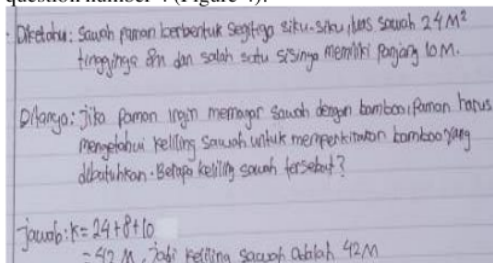 question number 4 (Figure 4).
Diketahui: Sawah paman berbentuk segitiga siku-siku, luas sawah 24 M²
tingginya 8m dan salah satu sisinya memiliki panjang 10 M.
Ditanya: Jika paman ingin memagar sawah dengan bamboo, Paman harus
mengetahui keliling sawah untuk memperkirakan bamboo yang
dibutuhkan. Berapa keliling sawah tersebut?
jawab: K = 24+8+10
= 42 M, Jadi keliling sawah adalah 42M